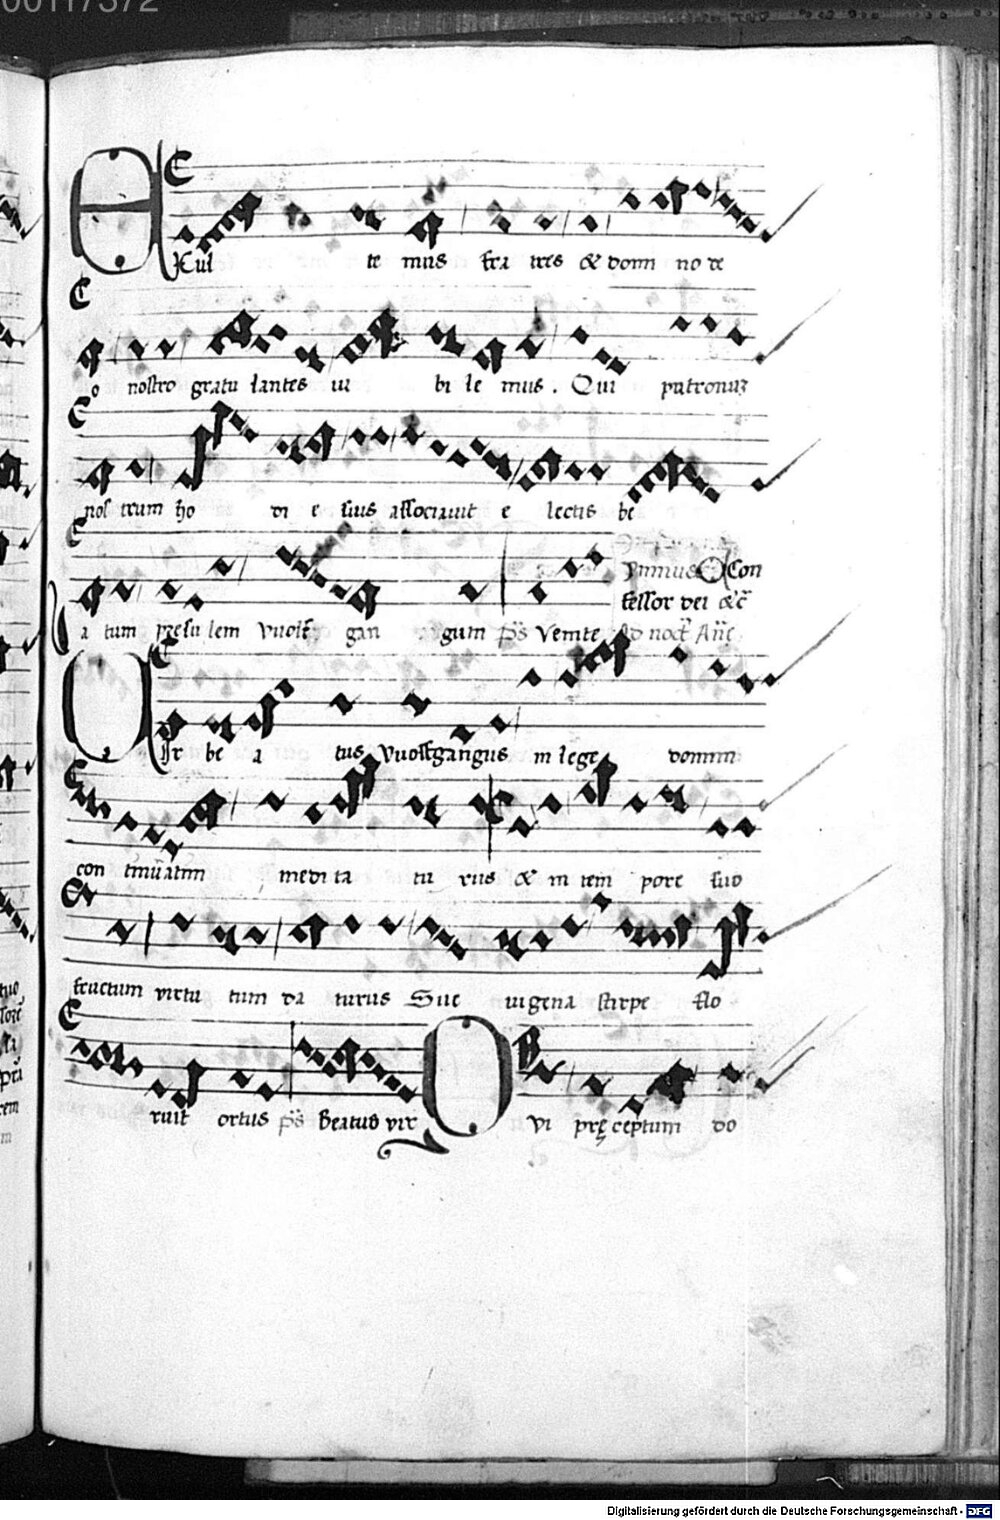 00117372
EXul te mus fra tres & domi no de
o nostro gratu lantes iu bi le mus. Qui patronuʒ
nos trum ho di e suis associauit e lectis be
Con
a tum presu lem Vuolf gan gum p̄s Venite Ad noct̄ Añe
fessor dei &c̄
UIr be a tus Vuolfgangus in lege domini
con tinuatim medi ta tu rus & in tem pore suo
fructum virtu tum da turus Sue uigena stirpe flo
ruit ortus p̄s Beatus vir Ui pręceptum do
Digitalisierung gefördert durch die Deutsche Forschungsgemeinschaft - DFG